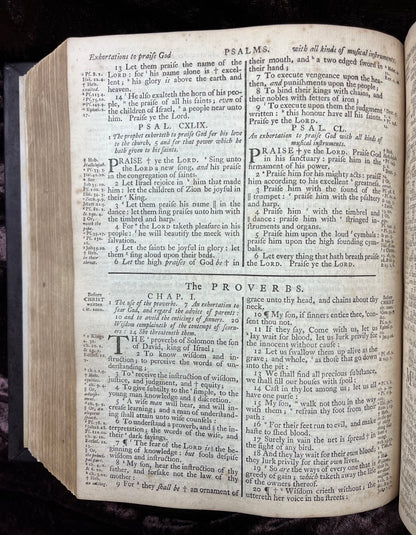 Exhortations to praise God
PSALMS.
with all kinds of musical instruments.
13 Let them praise the name of the
LORD: for his name alone is † excel-
lent; his glory is above the earth and
heaven.
14 He also exalteth the horn of his peo-
ple, the praise of all his saints; even of
the children of Israel, a people near unto
him. Praise ye the LORD.
PSAL. CXLIX.
1 The prophet exhorteth to praise God for his love
to the church, 5 and for that power which he
hath given to his saints.
PRAISE † ye the LORD. Sing unto
the LORD a new song, and his praise
in the congregation of saints.
2 Let Israel rejoice in him that made
him: let the children of Zion be joyful in
their King.
3 Let them praise his name || in the
dance: let them sing praises unto him with
the timbrel and harp.
4 For the LORD taketh pleasure in his
people: he will beautify the meek with
salvation.
5 Let the saints be joyful in glory: let
them sing aloud upon their beds.
6 Let the high praises of God be † in
their mouth, and a two edged sword in
their hand;
7 To execute vengeance upon the hea-
then, and punishments upon the people;
8 To bind their kings with chains, and
their nobles with fetters of iron;
9 To execute upon them the judgment
written: this honour have all his saints.
Praise ye the LORD.
PSAL. CL.
An exhortation to praise God with all kinds of
musical instruments.
PRAISE † ye the LORD. Praise God
in his sanctuary: praise him in the
firmament of his power.
2 Praise him for his mighty acts: praise
him according to his excellent greatness.
3 Praise him with the sound of the
|| trumpet: praise him with the psaltery
and harp.
4 Praise him with the timbrel and
|| dance: praise him with stringed in-
struments and organs.
5 Praise him upon the loud cymbals:
praise him upon the high sounding cym-
bals.
6 Let every thing that hath breath praise
the LORD. Praise ye the LORD.
The PROVERBS.
Before
CHRIST
CHAP. I.
1 The use of the proverbs. 7 An exhortation to
fear God, and regard the advice of parents:
10 and to avoid the enticings of sinners. 20
Wisdom complaineth of the contempt of scorn-
ers: 24 She threateneth them.
THE proverbs of Solomon the son
of David, king of Israel;
2 To know wisdom and in-
struction; to perceive the words of un-
derstanding;
3 To receive the instruction of wisdom,
justice, and judgment, and † equity;
4 To give subtilty to the simple, to the
young man knowledge and || discretion.
5 A wise man will hear, and will in-
crease learning; and a man of understand-
ing shall attain unto wise counsels:
6 To understand a proverb, and || the in-
terpretation; the words of the wise, and
their dark sayings.
7 ¶ The fear of the LORD is || the be-
ginning of knowledge: but fools despise
wisdom and instruction.
8 My son, hear the instruction of thy
father, and forsake not the law of thy
mother:
9 For they shall be † an ornament of
grace unto thy head, and chains about thy
neck.
10 ¶ My son, if sinners entice thee, con-
sent thou not.
11 If they say, Come with us, let us
lay wait for blood, let us lurk privily for
the innocent without cause:
12 Let us swallow them up alive as the
grave; and whole, as those that go down
into the pit:
13 We shall find all precious substance,
we shall fill our houses with spoil:
14 Cast in thy lot among us; let us all
have one purse:
15 My son, walk not thou in the way
with them; refrain thy foot from their
path:
16 For their feet run to evil, and make
haste to shed blood.
17 Surely in vain the net is spread † in
the sight of any bird.
18 And they lay wait for their own blood;
they lurk privily for their own lives.
19 So are the ways of every one that is
greedy of gain; which taketh away the life
of the owners thereof.
20 ¶ † Wisdom crieth without; she
uttereth her voice in the streets: